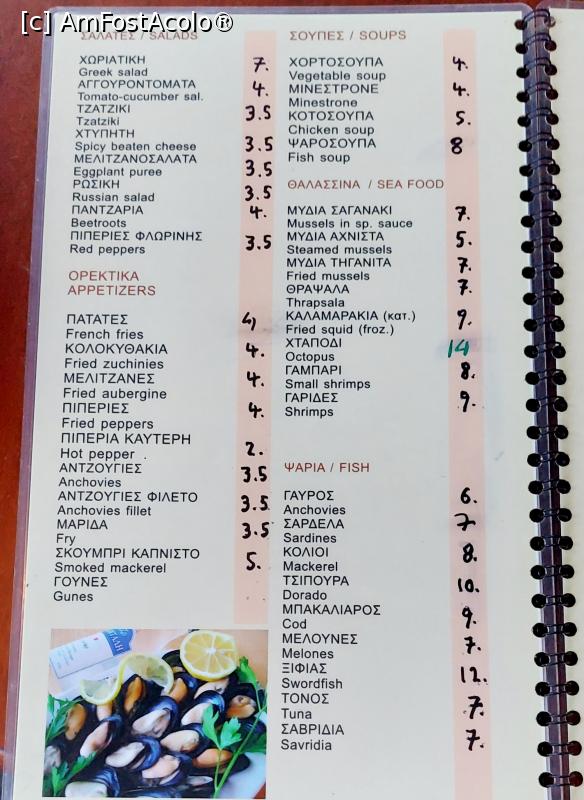 [c] AmFostAcolo®
ΣΑΛΑΤΕΣ / SALADS
ΧΩΡΙΑΤΙΚΗ 7.
Greek salad
ΑΓΓΟΥΡΟΝΤΟΜΑΤΑ 4.
Tomato-cucumber sal.
ΤΖΑΤΖΙΚΙ 3.5
Tzatziki
ΧΤΥΠΗΤΗ 3.5
Spicy beaten cheese
ΜΕΛΙΤΖΑΝΟΣΑΛΑΤΑ 3.5
Eggplant puree
ΡΩΣΙΚΗ 3.5
Russian salad
ΠΑΝΤΖΑΡΙΑ 4.
Beetroots
ΠΙΠΕΡΙΕΣ ΦΛΩΡΙΝΗΣ 3.5
Red peppers
ΟΡΕΚΤΙΚΑ
APPETIZERS
ΠΑΤΑΤΕΣ 4,
French fries
ΚΟΛΟΚΥΘΑΚΙΑ 4.
Fried zuchinies
ΜΕΛΙΤΖΑΝΕΣ 4.
Fried aubergine
ΠΙΠΕΡΙΕΣ 4.
Fried peppers
ΠΙΠΕΡΙΑ ΚΑΥΤΕΡΗ 2.
Hot pepper .
ΑΝΤΖΟΥΓΙΕΣ 3.5
Anchovies
ΑΝΤΖΟΥΓΙΕΣ ΦΙΛΕΤΟ 3.5
Anchovies fillet
ΜΑΡΙΔΑ 3.5
Fry
ΣΚΟΥΜΠΡΙ ΚΑΠΝΙΣΤΟ 5.
Smoked mackerel
ΓΟΥΝΕΣ
Gunes
ΣΟΥΠΕΣ / SOUPS
ΧΟΡΤΟΣΟΥΠΑ 4.
Vegetable soup
ΜΙΝΕΣΤΡΟΝΕ 4.
Minestrone
ΚΟΤΟΣΟΥΠΑ 5.
Chicken soup
ΨΑΡΟΣΟΥΠΑ 8
Fish soup
ΘΑΛΑΣΣΙΝΑ / SEA FOOD
ΜΥΔΙΑ ΣΑΓΑΝΑΚΙ 7.
Mussels in sp. sauce
ΜΥΔΙΑ ΑΧΝΙΣΤΑ 5.
Steamed mussels
ΜΥΔΙΑ ΤΗΓΑΝΙΤΑ 7.
Fried mussels
ΘΡΑΨΑΛΑ 7.
Thrapsala
ΚΑΛΑΜΑΡΑΚΙΑ (κατ.) 9.
Fried squid (froz.)
ΧΤΑΠΟΔΙ 14
Octopus
ΓΑΜΠΑΡΙ 8.
Small shrimps
ΓΑΡΙΔΕΣ 9.
Shrimps
ΨΑΡΙΑ / FISH
ΓΑΥΡΟΣ 6.
Anchovies
ΣΑΡΔΕΛΑ 7
Sardines
ΚΟΛΙΟΙ 8.
Mackerel
ΤΣΙΠΟΥΡΑ 10.
Dorado
ΜΠΑΚΑΛΙΑΡΟΣ 9.
Cod
ΜΕΛΟΥΝΕΣ 7.
Melones
ΞΙΦΙΑΣ 12.
Swordfish
ΤΟΝΟΣ 7.
Tuna
ΣΑΒΡΙΔΙΑ 7.
Savridia